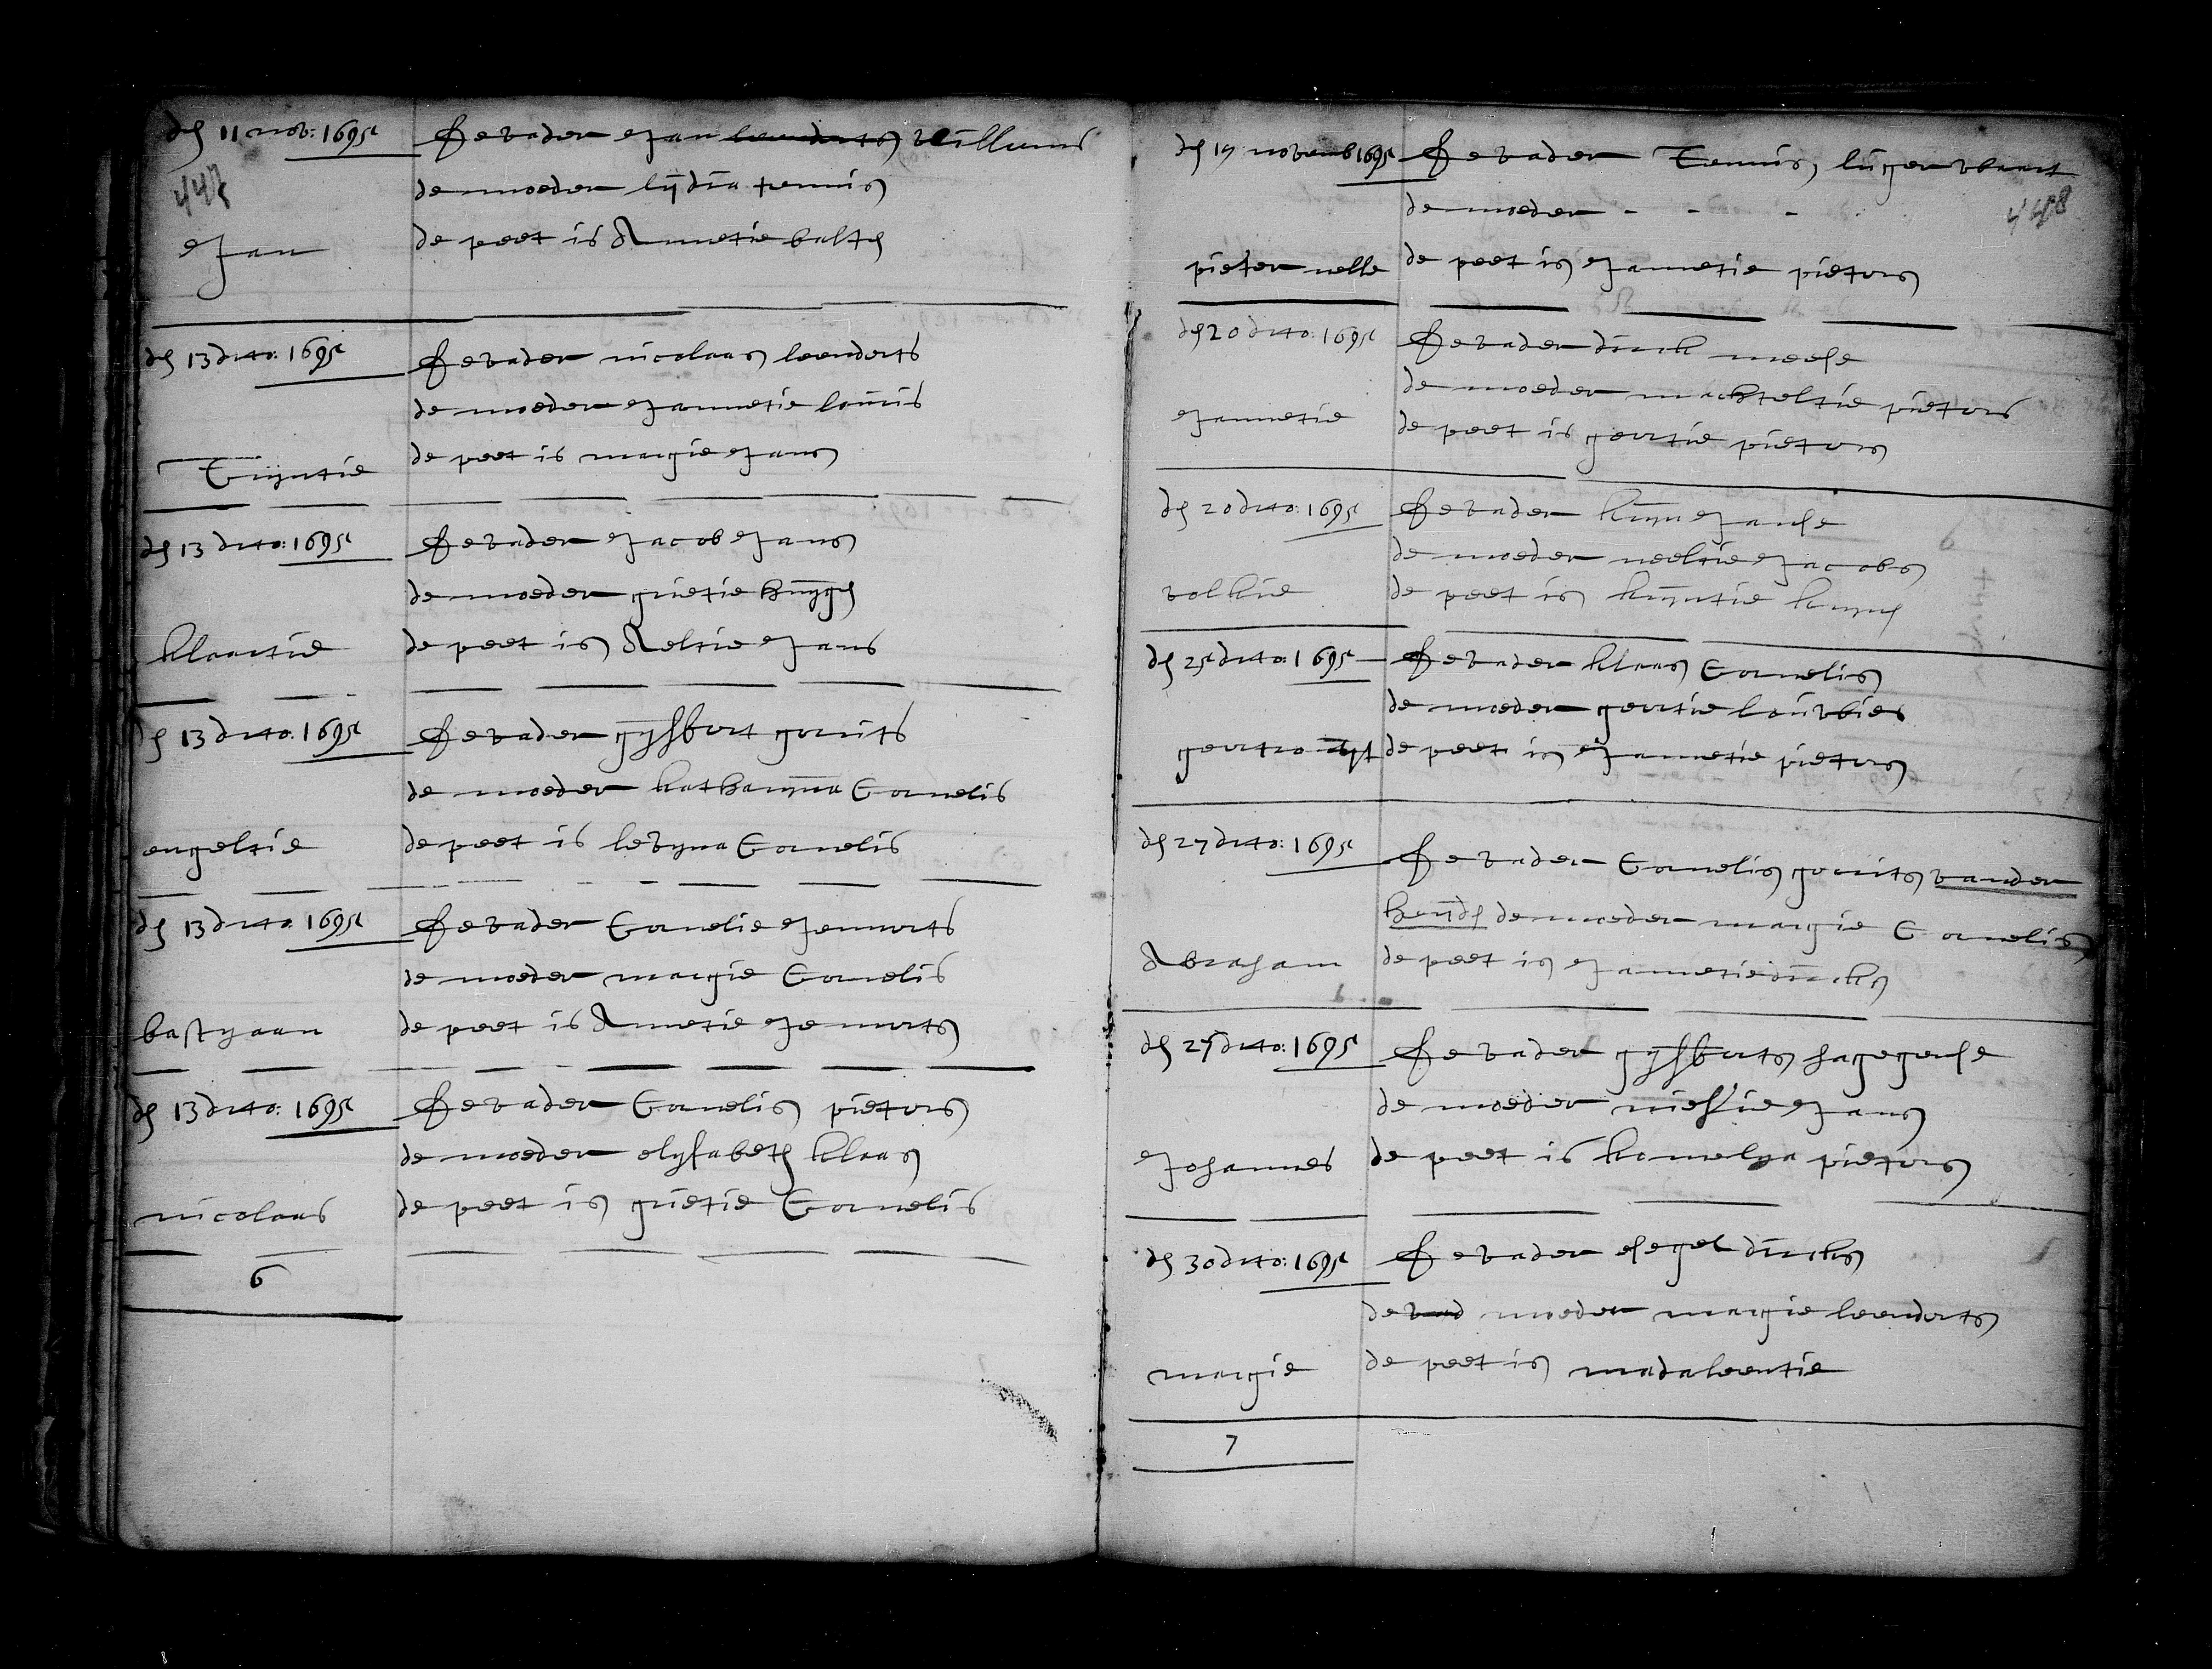 den 11 nov: 1695 De vader Jan leenderts willums
447 de moeder lÿdia teunis
Jan de peet is Annetie balten
den 13 ditto: 1695 De vader nicolaas leenderts
de moeder Jannetie louris
Trijntie de peet is margie Jans
den 13 ditto: 1695 De vader Jacob Jans
de moeder grietie huÿgen
klaartie de peet is Aeltie Jans
den 13 ditto: 1695 De vader gijsbert gerrits
de moeder katharijna Cornelis
engeltie de peet is levyna Cornelis
den 13 ditto: 1695 De vader Cornelis
de moeder margie Cornelis
bastyaan de peet is Annetie
den 13 ditto: 1695 De vader Cornelis pieters
de moeder elysabeth klaas
nicolaas de peet is grietie Cornelis
6
den 17 novemb 1695 De vader Teunis
de moeder - - - 448
pieternelle de peet is Jannetie pieters
den 20 ditto: 1695 De vader dirck meese
de moeder machteltie pieters
Jannetie de peet is geertie pieters
den 20 ditto: 1695 De vader krijn Janse
de moeder neeltie Jacobs
volkie de peet is krijntie krijnen
den 25 ditto: 1695 De vader klaas Cornelis
de moeder geertie
geertro de peet is Jannetie pieters
den 27 ditto: 1695 De vader Cornelis gerrits vander
heuden de moeder margie Cornelis
Abraham de peet is Jannetie dircks
den 27 ditto: 1695 De vader gijsberts
de moeder niesie Jans
Johannes de peet is kornelya pieters
den 30 ditto: 1695 De vader dircks
de vad moeder margie leenderts
margie de peet is madaleentie
7